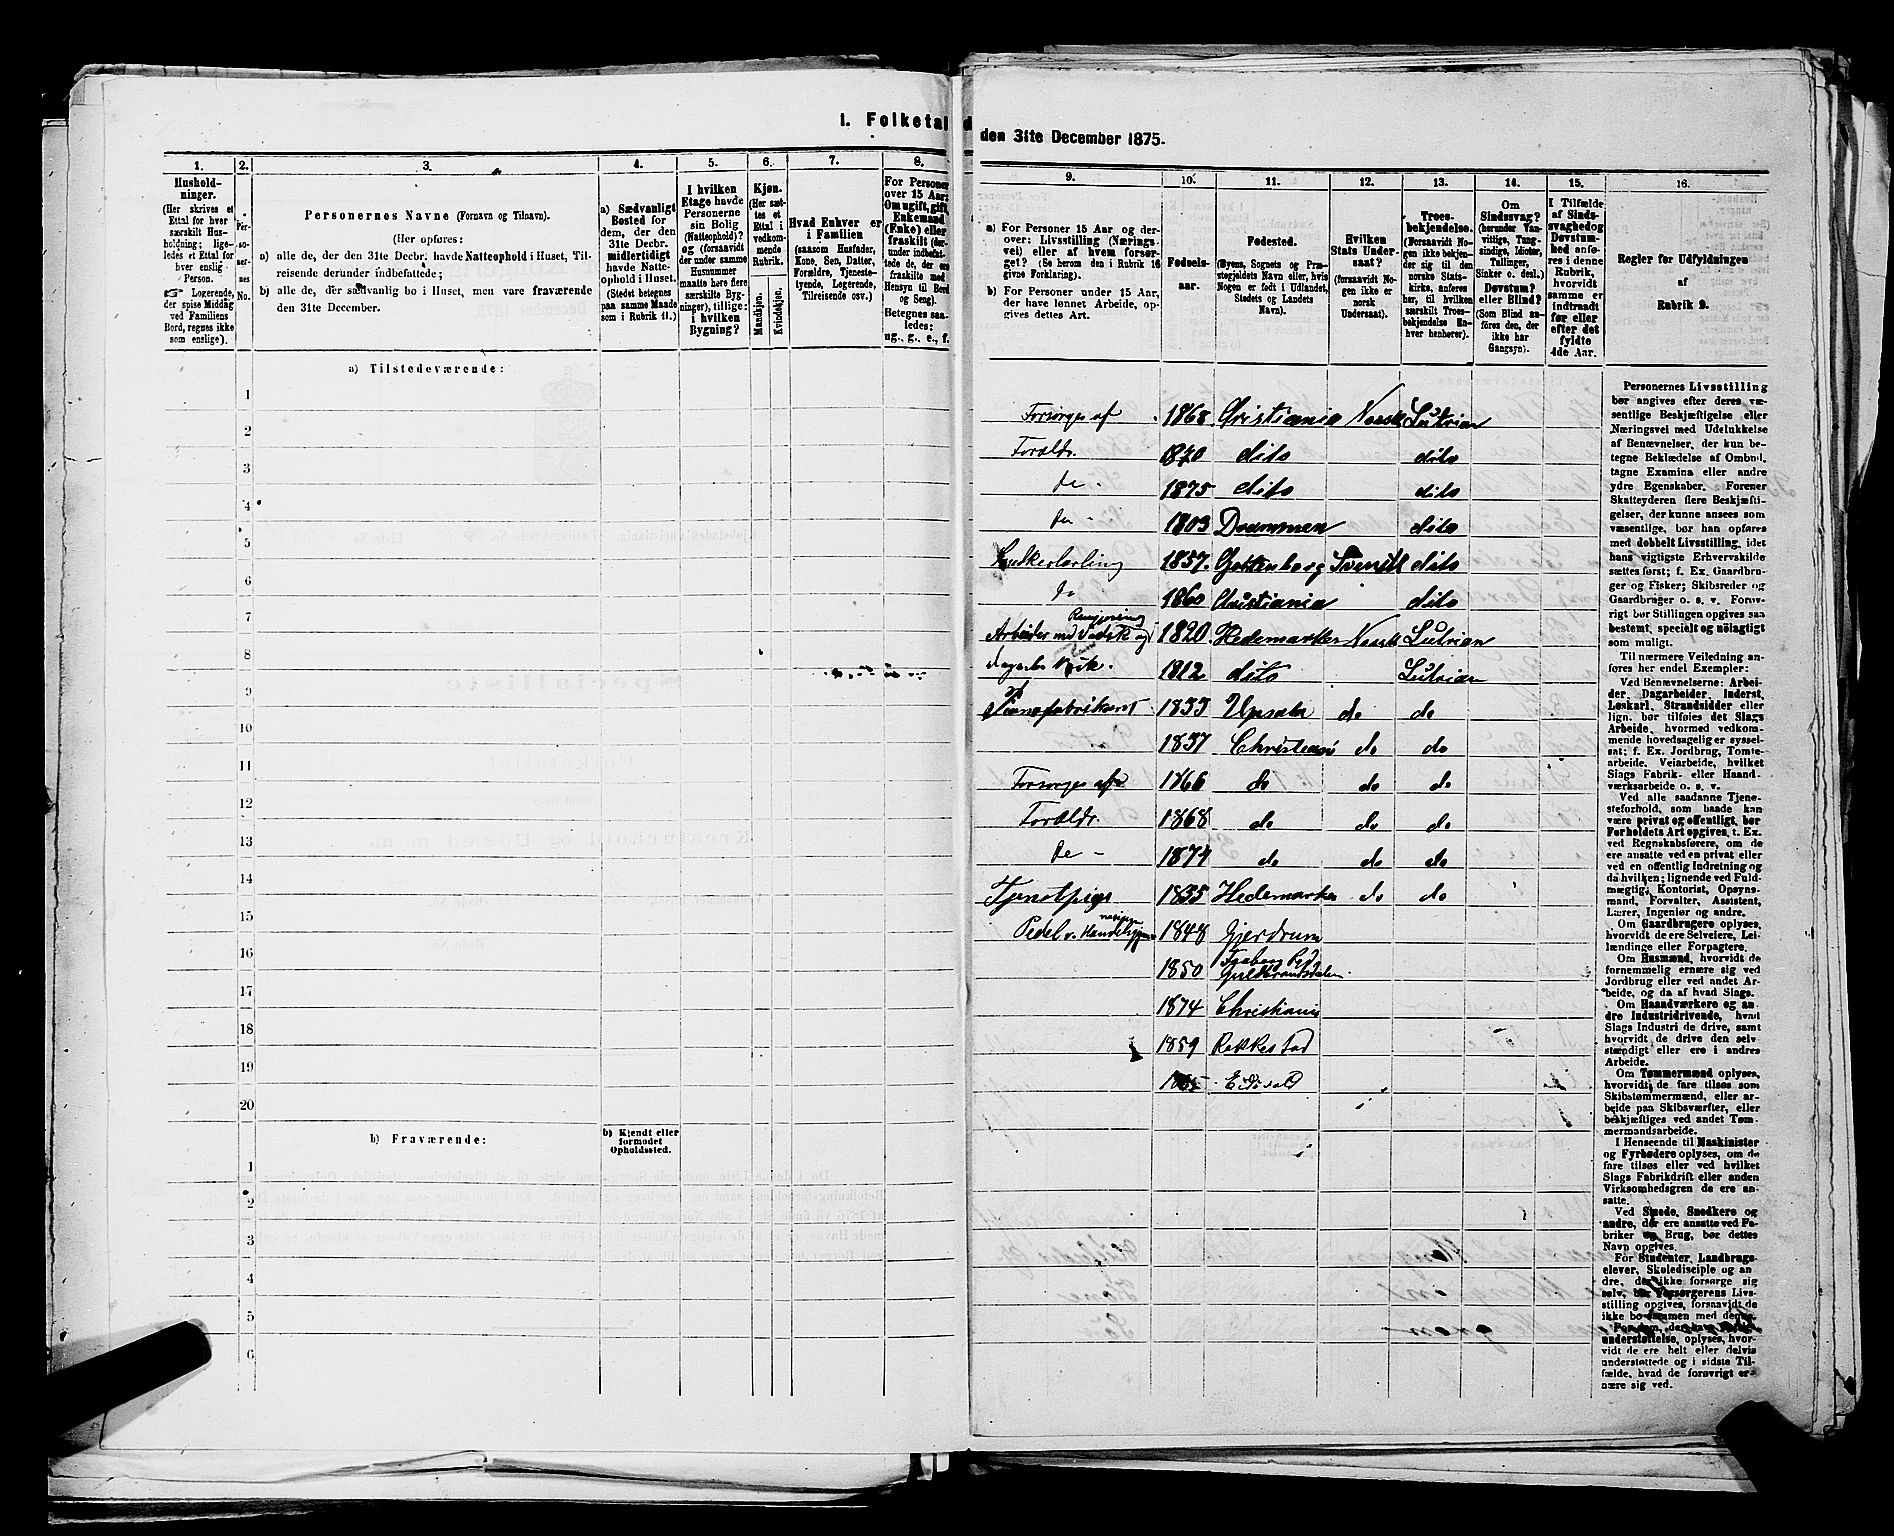 I. Folketal
den 31te December 1875.
1.
Hushold-
ninger.
(Her skrives et
Ettal for hver
særskilt Hus-
holdning; lige-
ledes et Ettal for
hver enslig
Person.
☞ Logerende,
der spise Middag
ved Familiens
Bord, regnes ikke
som enslige).
2.
Per-
so-
ner-
nes
No.
3.
Personernes Navne (Fornavn og Tilnavn).
(Her opføres:
a) alle de, der den 31te Decbr. havde Natteophold i Huset, Til-
reisende derunder indbefattede;
b) alle de, der sædvanlig bo i Huset, men vare fraværende
den 31te December.
4.
a) Sædvanligt
Bosted for
dem, der den
31te Decbr.
midlertidigt
havde Natte-
ophold i Huset.
(Stedet betegnes
paa samme Maade
som i Rubrik 11.)
5.
I hvilken
Etage havde
Personerne
sin Bolig
(Natteophold)?
og (forsaavidt
der under samme
Husnummer
maatte høre flere
særskilte Byg-
ninger), tillige:
i hvilken
Bygning?
6.
Kjøn.
(Her sæt-
tes et
Ettal i
vedkom-
mende
Rubrik.
Mandkjøn.
Kvindekjøn.
7.
Hvad Enhver er
i Familien
(saasom Husfader,
Kone, Søn, Datter,
Forældre, Tjeneste-
tyende, Logerende,
Tilreisende osv.)
8.
For Personer
over 15 Aar:
Om ugift, gift,
Enkemand
(Enke) eller
fraskilt
Betegnes saa-
ledes:
ug., g., e., f.
a) Tilstedeværende:
1
2
3
4
5
6
7
8
9
10
11
12
13
14
15
16
17
18
19
20
b) Fraværende:
b) Kjendt eller
formodet
Opholdssted.
1
2
3
4
5
6
9.
a) For Personer 15 Aar og der-
over: Livsstilling (Nærings-
vei) eller af hvem forsør-
get? (Se herom den i Rubrik 16
givne Forklaring).
b) For Personer under 15 Aar,
der have lønnet Arbeide, op-
gives dettes Art.
10.
Fødsels-
aar.
11.
Fødested.
(Byens, Sognets og Præ-
stegjeldets Navn eller, hvis
Nogen er født i Udlandet,
Stedets og Landets
Navn).
12.
Hvilken
Stats Under-
saat?
(forsaavidt No-
gen ikke er
norsk
Undersaat).
13.
Troes-
bekjendelse.
(Forsaavidt No-
gen ikke bekjen-
der sig til den
norske Stats-
kirke, anføres
her, til hvilken
særskilt Troes-
bekjendelse En-
hver henhører).
14.
Om
Sindssvag?
(herunder Van-
vittige, Tung-
sindige, Idioter,
Tullinger,
Sinker o. desl.)
Døvstum?
eller Blind?
(Som Blind an-
føres den, der
ikke har
Gangsyn).
15.
I Tilfælde
af Sinds-
svaghed og
Døvstum-
hed anfø-
res i denne
Rubrik,
hvorvidt
samme er
indtraadt
før eller
efter det
fyldte
4de Aar.
16.
Regler for Udfyldningen
af
Rubrik 9.
Forsørges af 1868 Christiania Norsk Lutrian
Foræld. 1870 dito dito
do - 1875 dito dito
do - 1803 Drammen dito
Snedkerlærling 1857. Gottenborg Svensk dito
do 1860 Christiania dito
Rengjøring
Arbeider med Vadsk og 1820 Hedemarken Norsk Lutrian
1812 dito Lutrian
Pianofabrikant 1833 Upsala do do
1837 Christiania do do
Forsørges af 1866 do do do
Foræld. 1868 do do do
do - 1874 do do do
Tjenestpige 1835 Hedemarken do do
Pedel v. 1848 Gjerdrum
1850 Faaberg Gulbrandsdalen
1874 Christiania
1859 Rakkestad
Eidsvold
Personernes Livsstilling
bør angives efter deres væ-
sentlige Beskjæftigelse eller
Næringsvei med Udelukkelse
af Benævnelser, der kun be-
tegne Beklædelse af Ombud,
tagne Examina eller andre
ydre Egenskaber. Forener
Skatteyderen flere Beskjæfti-
gelser, der kunne ansees som
væsentlige, bør han opføres
med dobbelt Livsstilling, idet
hans vigtigste Erhvervskilde
sættes først; f. Ex. Gaardbru-
ger og Fisker; Skibsreder og
Gaardbruger o. s. v. Forøv-
rigt bør Stillingen opgives saa
bestemt, specielt og nøiagtigt
som muligt.
Til nærmere Veiledning an-
føres her endel Exempler:
Ved Benævnelserne: Arbei-
der, Dagarbeider, Inderst,
Løskarl, Strandsidder eller
lign. bør tilføies det Slags
Arbeide, hvormed vedkom-
mende hovedsagelig er syssel-
sat; f. Ex. Jordbrug, Tomte-
arbeide, Veiarbeide, hvilket
Slags Fabrik- eller Haand-
værksarbeide o. s. v.
Ved alle saadanne Tjene-
steforhold, som baade kan
være privat og offentligt, bør
Forholdets Art opgives, t. Ex.
ved Regnskabsførere, om de
ere ansatte ved en privat eller
ved en offentlig Indretning og
da hvilken; lignende ved Fuld-
mægtig, Kontorist, Opsyns-
mand, Forvalter, Assistent,
Lærer, Ingeniør og andre.
Om Gaardbrugere oplyses,
hvorvidt de ere Selveiere, Lei-
lændinge eller Forpagtere.
Om Husmænd, hvorvidt de
fornemmelig ernære sig ved
Jordbrug eller ved andet Ar-
beide, og da af hvad Slags.
Om Haandværkere og an-
dre Industridrivende, hvad
Slags Industri de drive, samt
hvorvidt de drive den selv-
stændigt eller ere i andres
Arbeide.
Om Tømmermænd oplyses,
hvorvidt de fare tilsøs som
Skibstømmermænd, eller ar-
beide paa Skibsværfter, eller
beskjæftiges ved andet Tøm-
mermandsarbeide.
I Henseende til Maskinister
og Fyrbødere oplyses, om de
fare tilsøs eller ved hvilket
Slags Fabrikdrift eller anden
Virksomhedsgren de ere an-
satte.
Ved Smede, Snedkere og
andre, der ere ansatte ved Fa-
briker og Brug, bør dettes
Navn opgives.
For Studenter, Landbrugs-
elever, Skoledisciple og an-
dre, der ikke forsørge sig
selv, bør Forsørgerens Livs-
stilling opgives, forsaavidt de
ikke bo sammen med denne.
For dem, der have
understøttelse, oplyses, hvor-
vidt de ere helt eller delvis
understøttede og i sidste Til-
fælde, hvad de forøvrigt er-
nære sig ved.